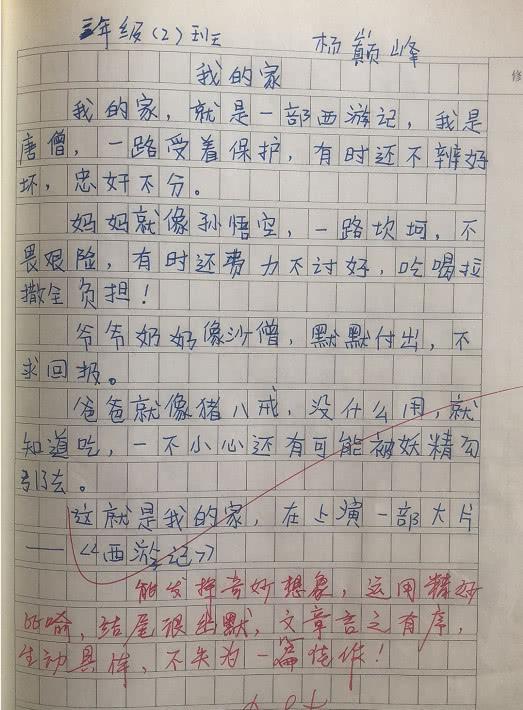 三年级(2)班 杨巅峰
修
我的家
我的家，就是一部西游记，我是
唐僧，一路受着保护，有时还不辨好
坏，忠奸不分。
妈妈就像孙悟空，一路坎坷，不
畏艰险，有时还费力不讨好，吃喝拉
撒全负担！
爷爷奶奶像沙僧，默默付出，不
求回报。
爸爸就像猪八戒，没什么用，就
知道吃，一不小心还有可能被妖精勾
引去。
这就是我的家，在上演一部大片
——《西游记》
能发挥奇妙想象，运用精妙
比喻，结尾很幽默，文章言之有序，
生动具体，不失为一篇佳作！